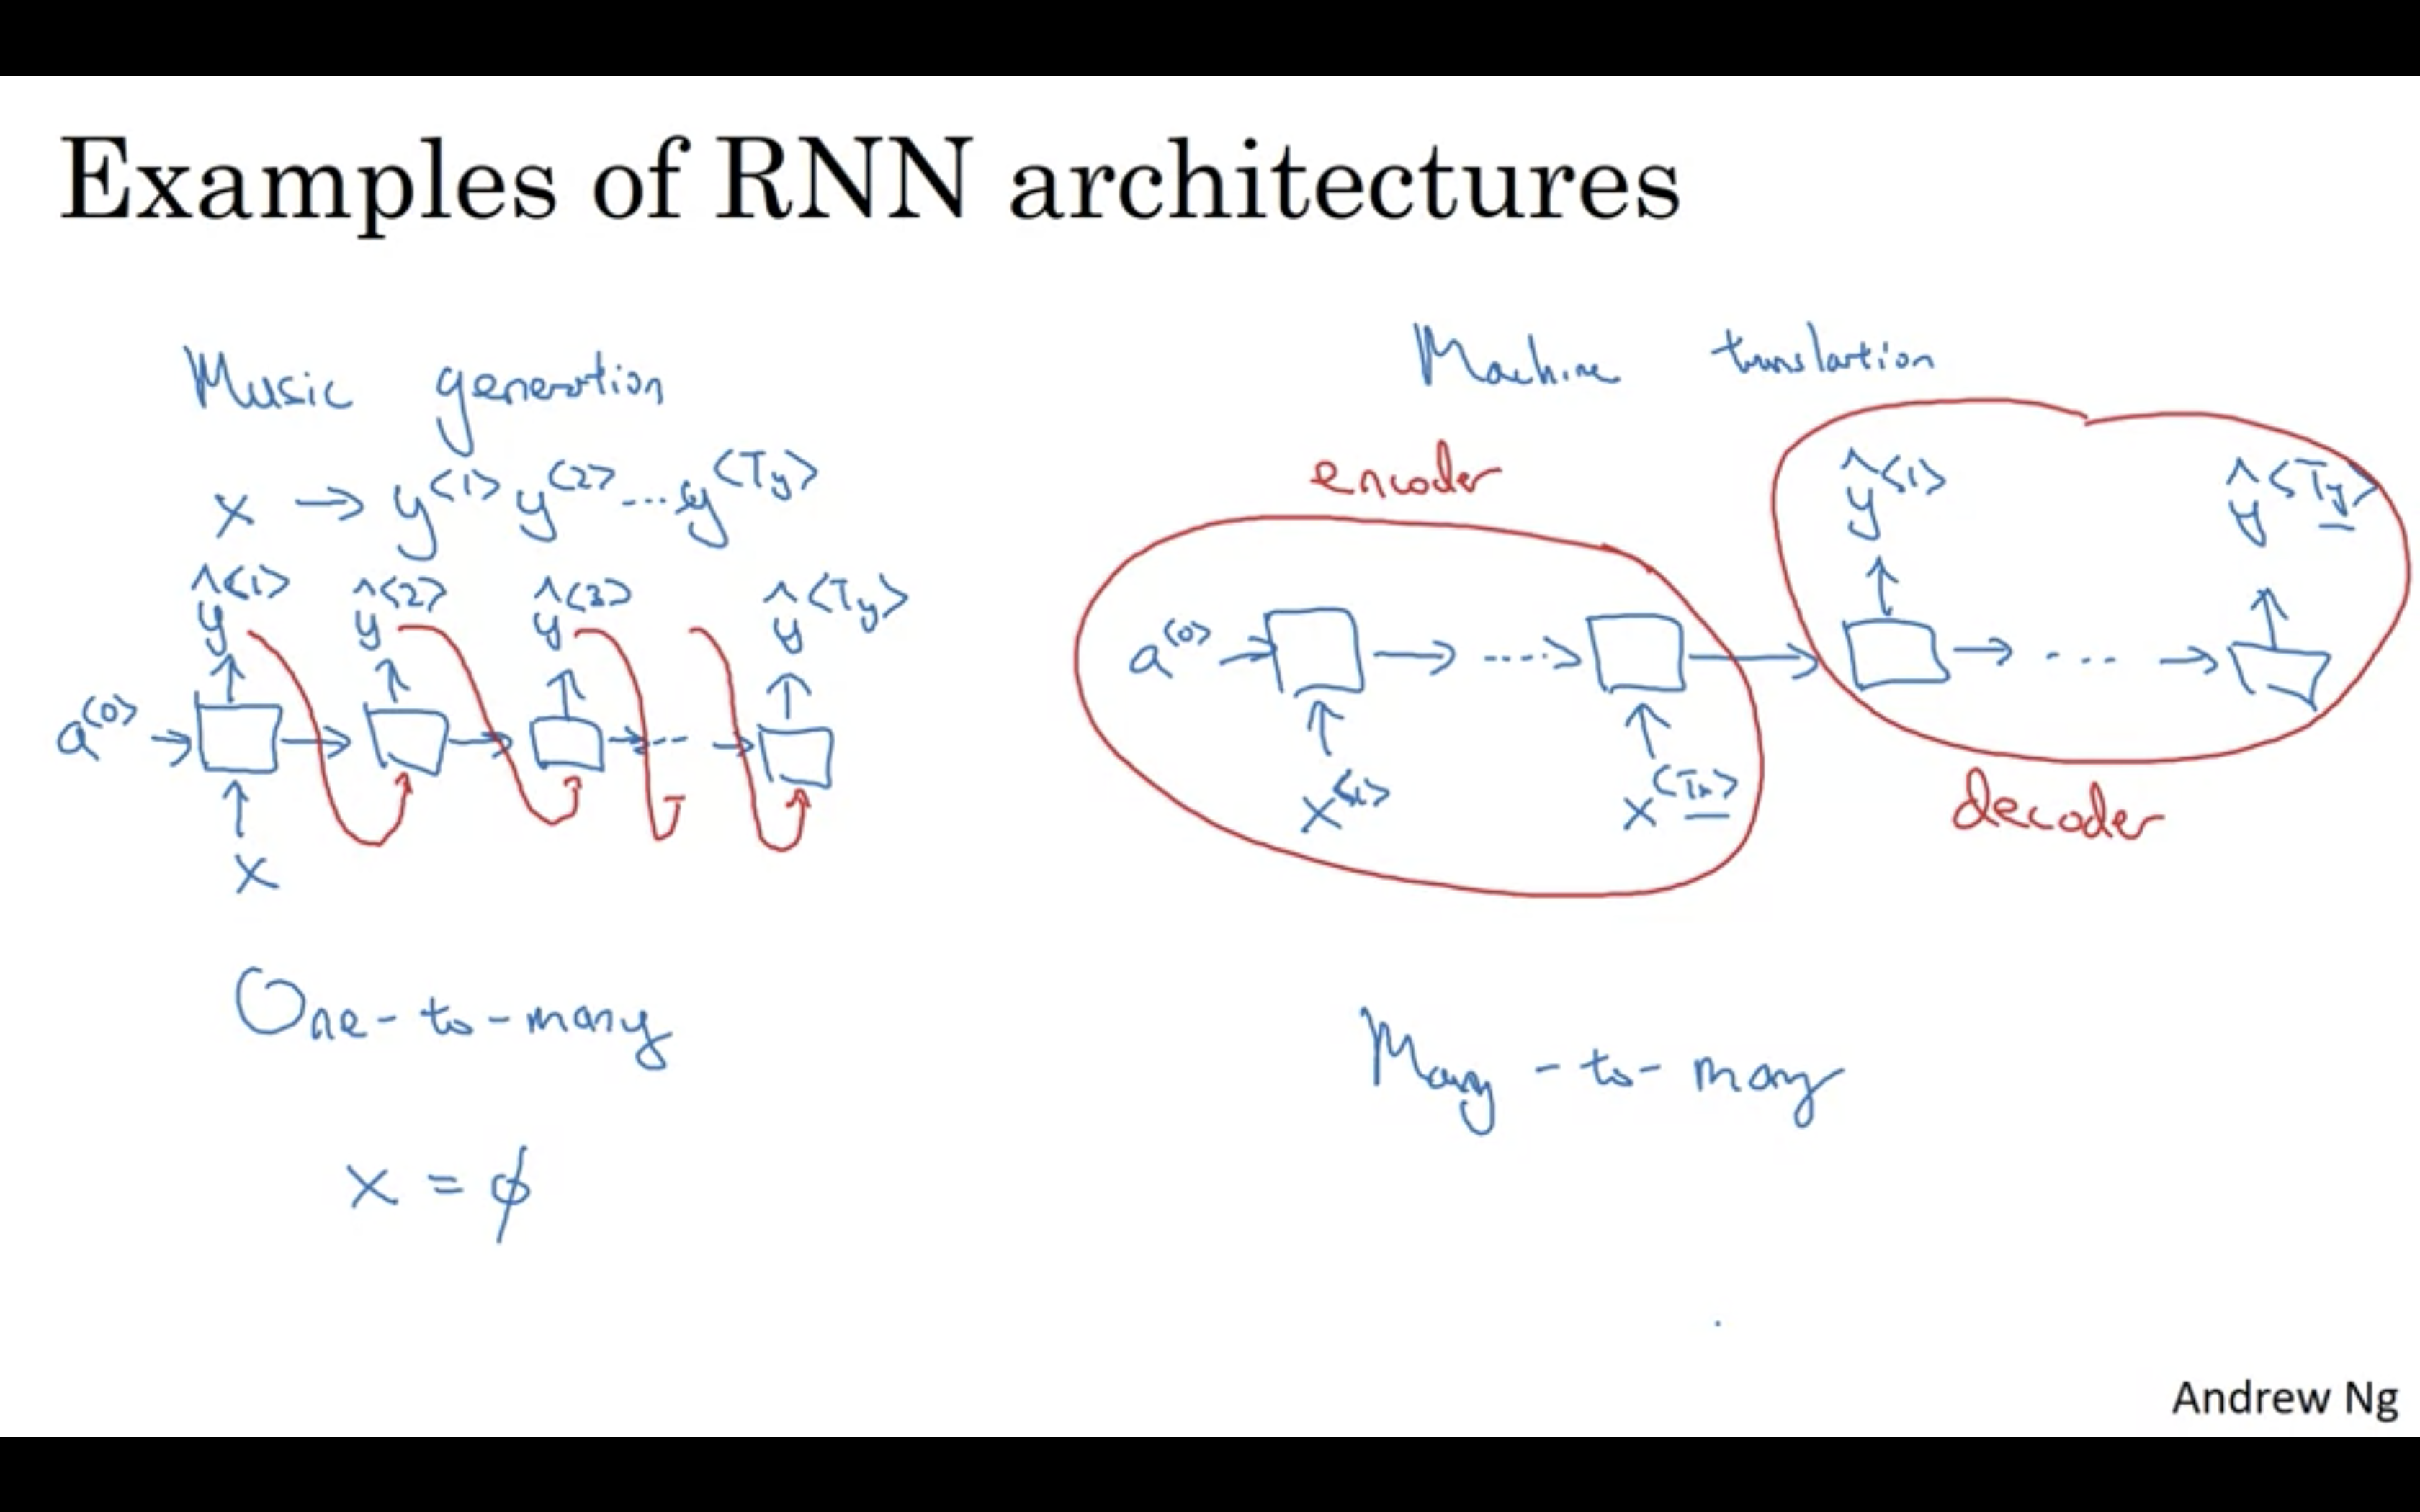 Examples of RNN architectures
Music generation
x → y<1> y<2> ... y<Ty>
ŷ<1> ŷ<2> ŷ<3> ŷ<Ty>
a<0> → → → --- →
x
One-to-many
x = ϕ
Machine translation
encoder
ŷ<1> ŷ<Ty>
a<0> → → ----> → → ... →
x<1> x<Tx>
decoder
Many-to-many
Andrew Ng